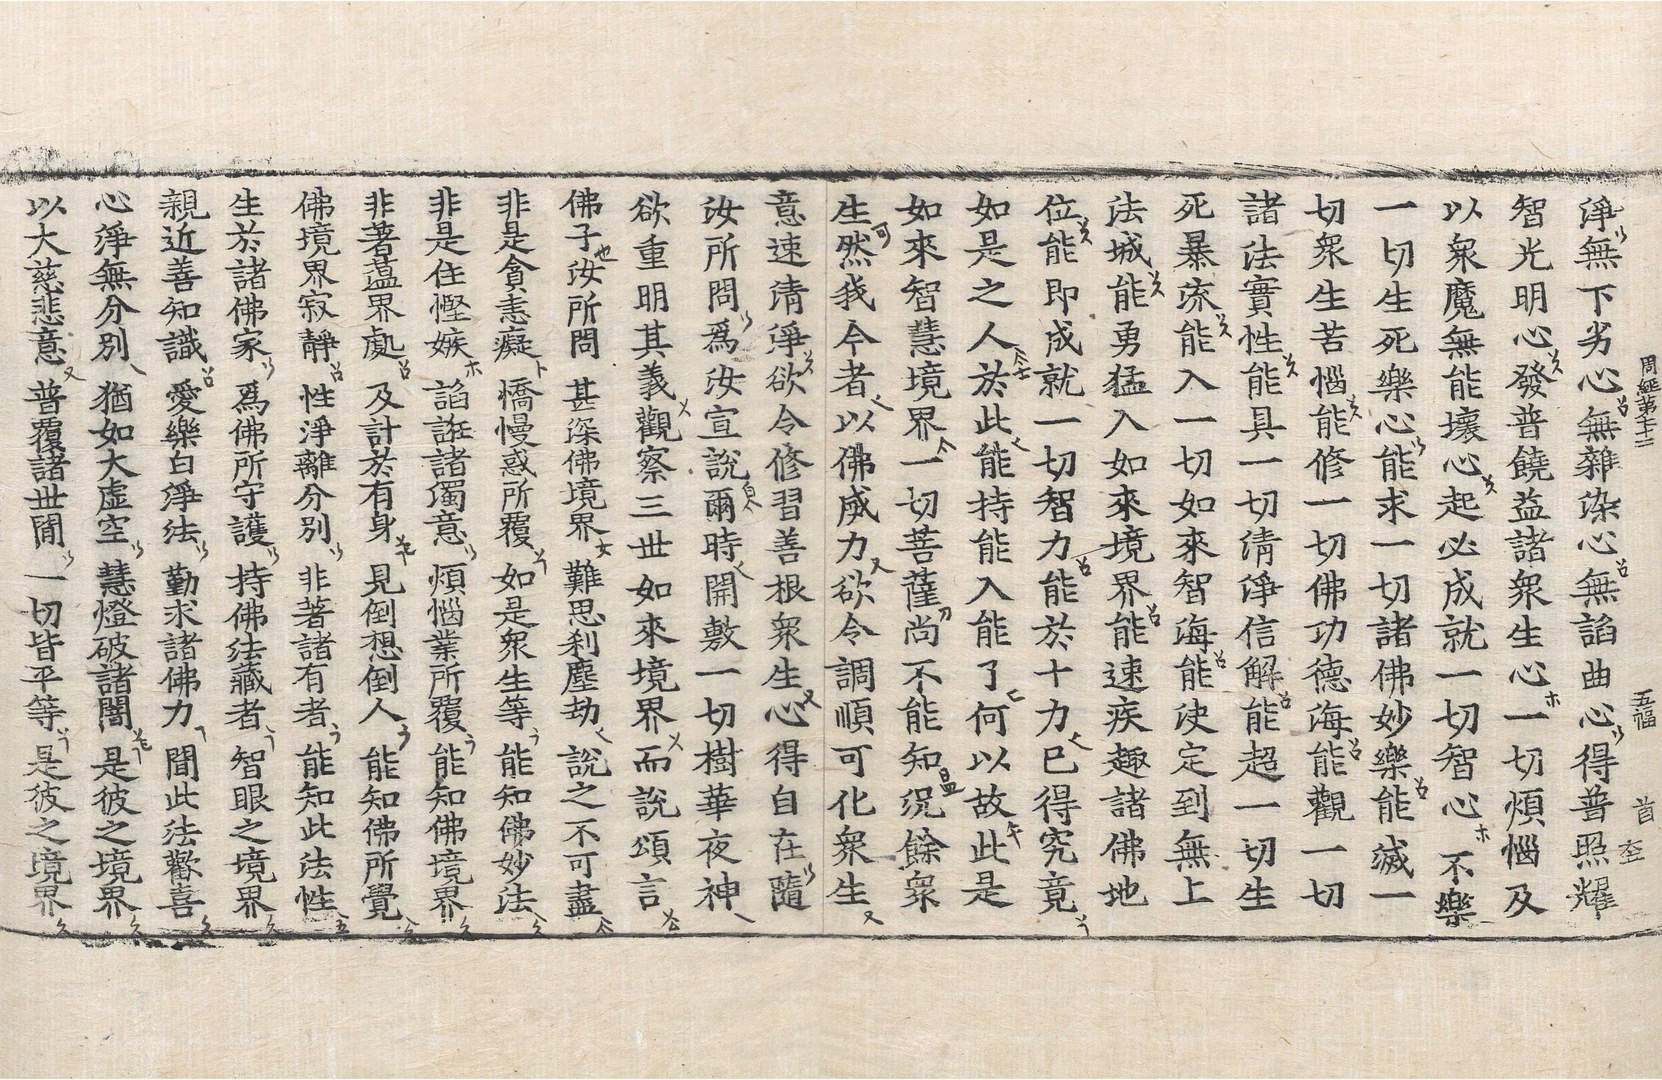 周經第七十二 五福 首
淨無下劣心無雜染心無諂曲心得普照耀
智光明心發普饒益諸衆生心一切煩惱及
以衆魔無能壞心起必成就一切智心不樂
一切生死樂心能求一切諸佛妙樂能滅一
切衆生苦惱能修一切佛功德海能觀一切
諸法實性能具一切清淨信解能超一切生
死暴流能入一切如來智海能決定到無上
法城能勇猛入如來境界能速疾趣諸佛地
位能即成就一切智力能於十力已得究竟
如是之人於此能持能入能了何以故此是
如來智慧境界一切菩薩尚不能知況餘衆
生然我今者以佛威力欲令調順可化衆生
意速清淨欲令修習善根衆生心得自在隨
汝所問爲汝宣說爾時開敷一切樹華夜神
欲重明其義觀察三世如來境界而說頌言
佛子汝所問 甚深佛境界 難思刹塵劫 說之不可盡
非是貪恚癡 憍慢惑所覆 如是衆生等 能知佛妙法
非是住慳嫉 諂誑諸濁意 煩惱業所覆 能知佛境界
非著蘊界處 及計於有身 見倒想倒人 能知佛所覺
佛境界寂靜 性淨離分別 非著諸有者 能知此法性
生於諸佛家 爲佛所守護 持佛法藏者 智眼之境界
親近善知識 愛樂白淨法 勤求諸佛力 聞此法歡喜
心淨無分別 猶如大虛空 慧燈破諸闇 是彼之境界
以大慈悲意 普覆諸世間 一切皆平等 是彼之境界